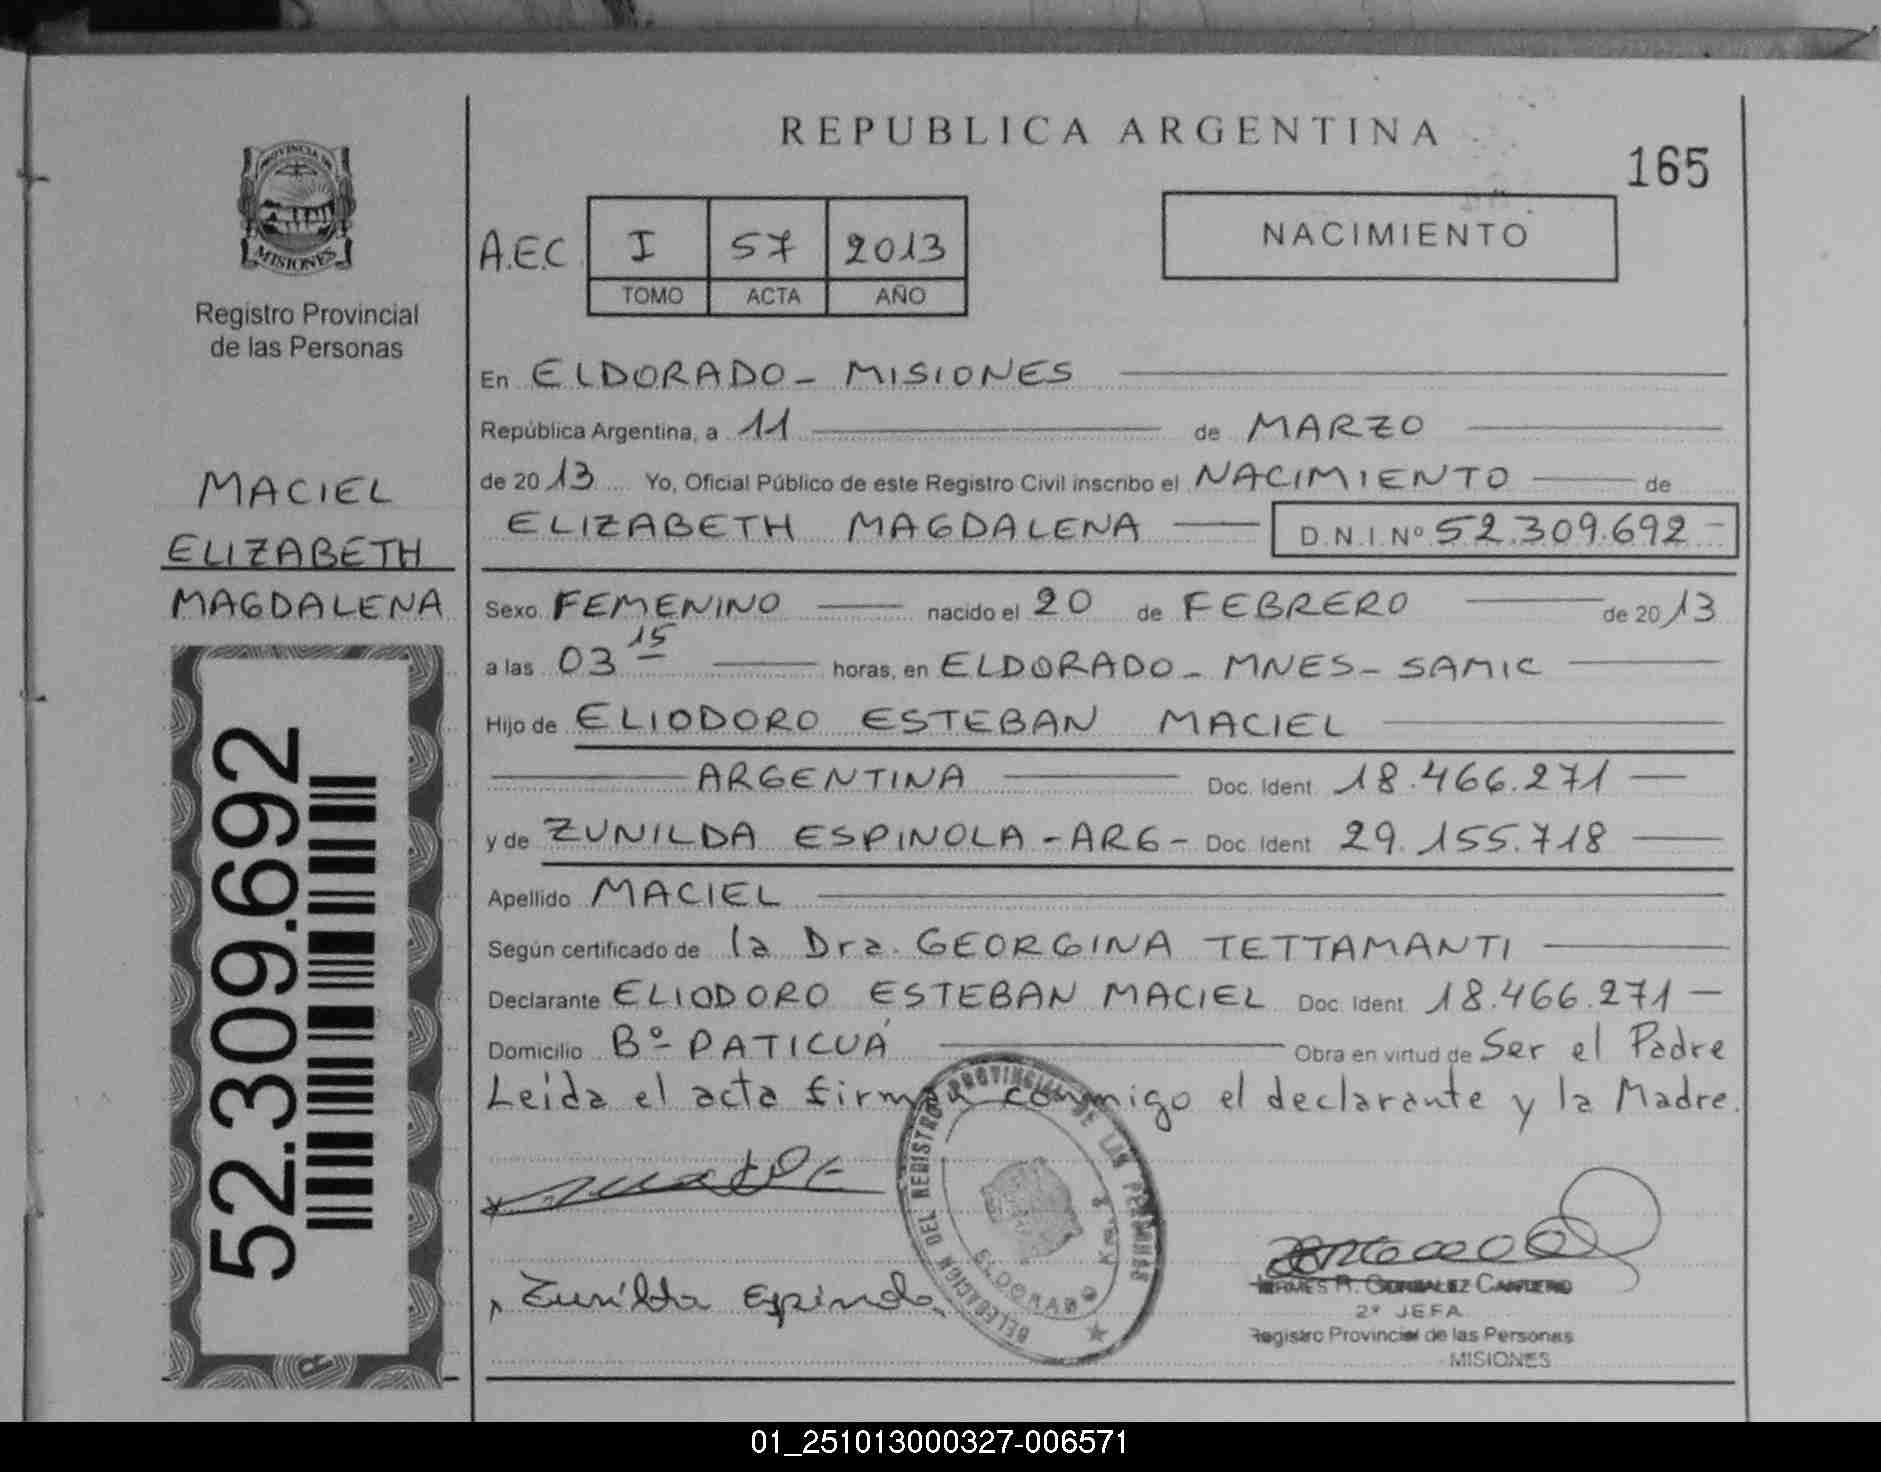 REPUBLICA ARGENTINA
165
PROVINCIA DE
MISIONES
Registro Provincial
de las Personas
A.E.C. I 57 2013
TOMO ACTA AÑO
NACIMIENTO
En ELDORADO - MISIONES
República Argentina, a 11 de MARZO
de 2013 Yo, Oficial Público de este Registro Civil inscribo el NACIMIENTO de
ELIZABETH MAGDALENA D.N.I.Nº 52.309.692
MACIEL
ELIZABETH
MAGDALENA
Sexo FEMENINO nacido el 20 de FEBRERO de 2013
a las 03 15 horas, en ELDORADO - MNES - SAMIC
Hijo de ELIODORO ESTEBAN MACIEL
ARGENTINA Doc. Ident. 18.466.271
y de ZUNILDA ESPINOLA - ARG - Doc. Ident. 29.155.718
Apellido MACIEL
Según certificado de la Dra. GEORGINA TETTAMANTI
Declarante ELIODORO ESTEBAN MACIEL Doc. Ident. 18.466.271
Domicilio Bº PATICUÁ Obra en virtud de Ser el Padre
Leida el acta firman conmigo el declarante y la Madre.
52.309.692
DELEGACION DEL REGISTRO PROVINCIAL DE LAS PERSONAS
ELDORADO
Zunilda Espinola
HERMES R. GONZALEZ
2º JEFA
Registro Provincial de las Personas
MISIONES
01_251013000327-006571